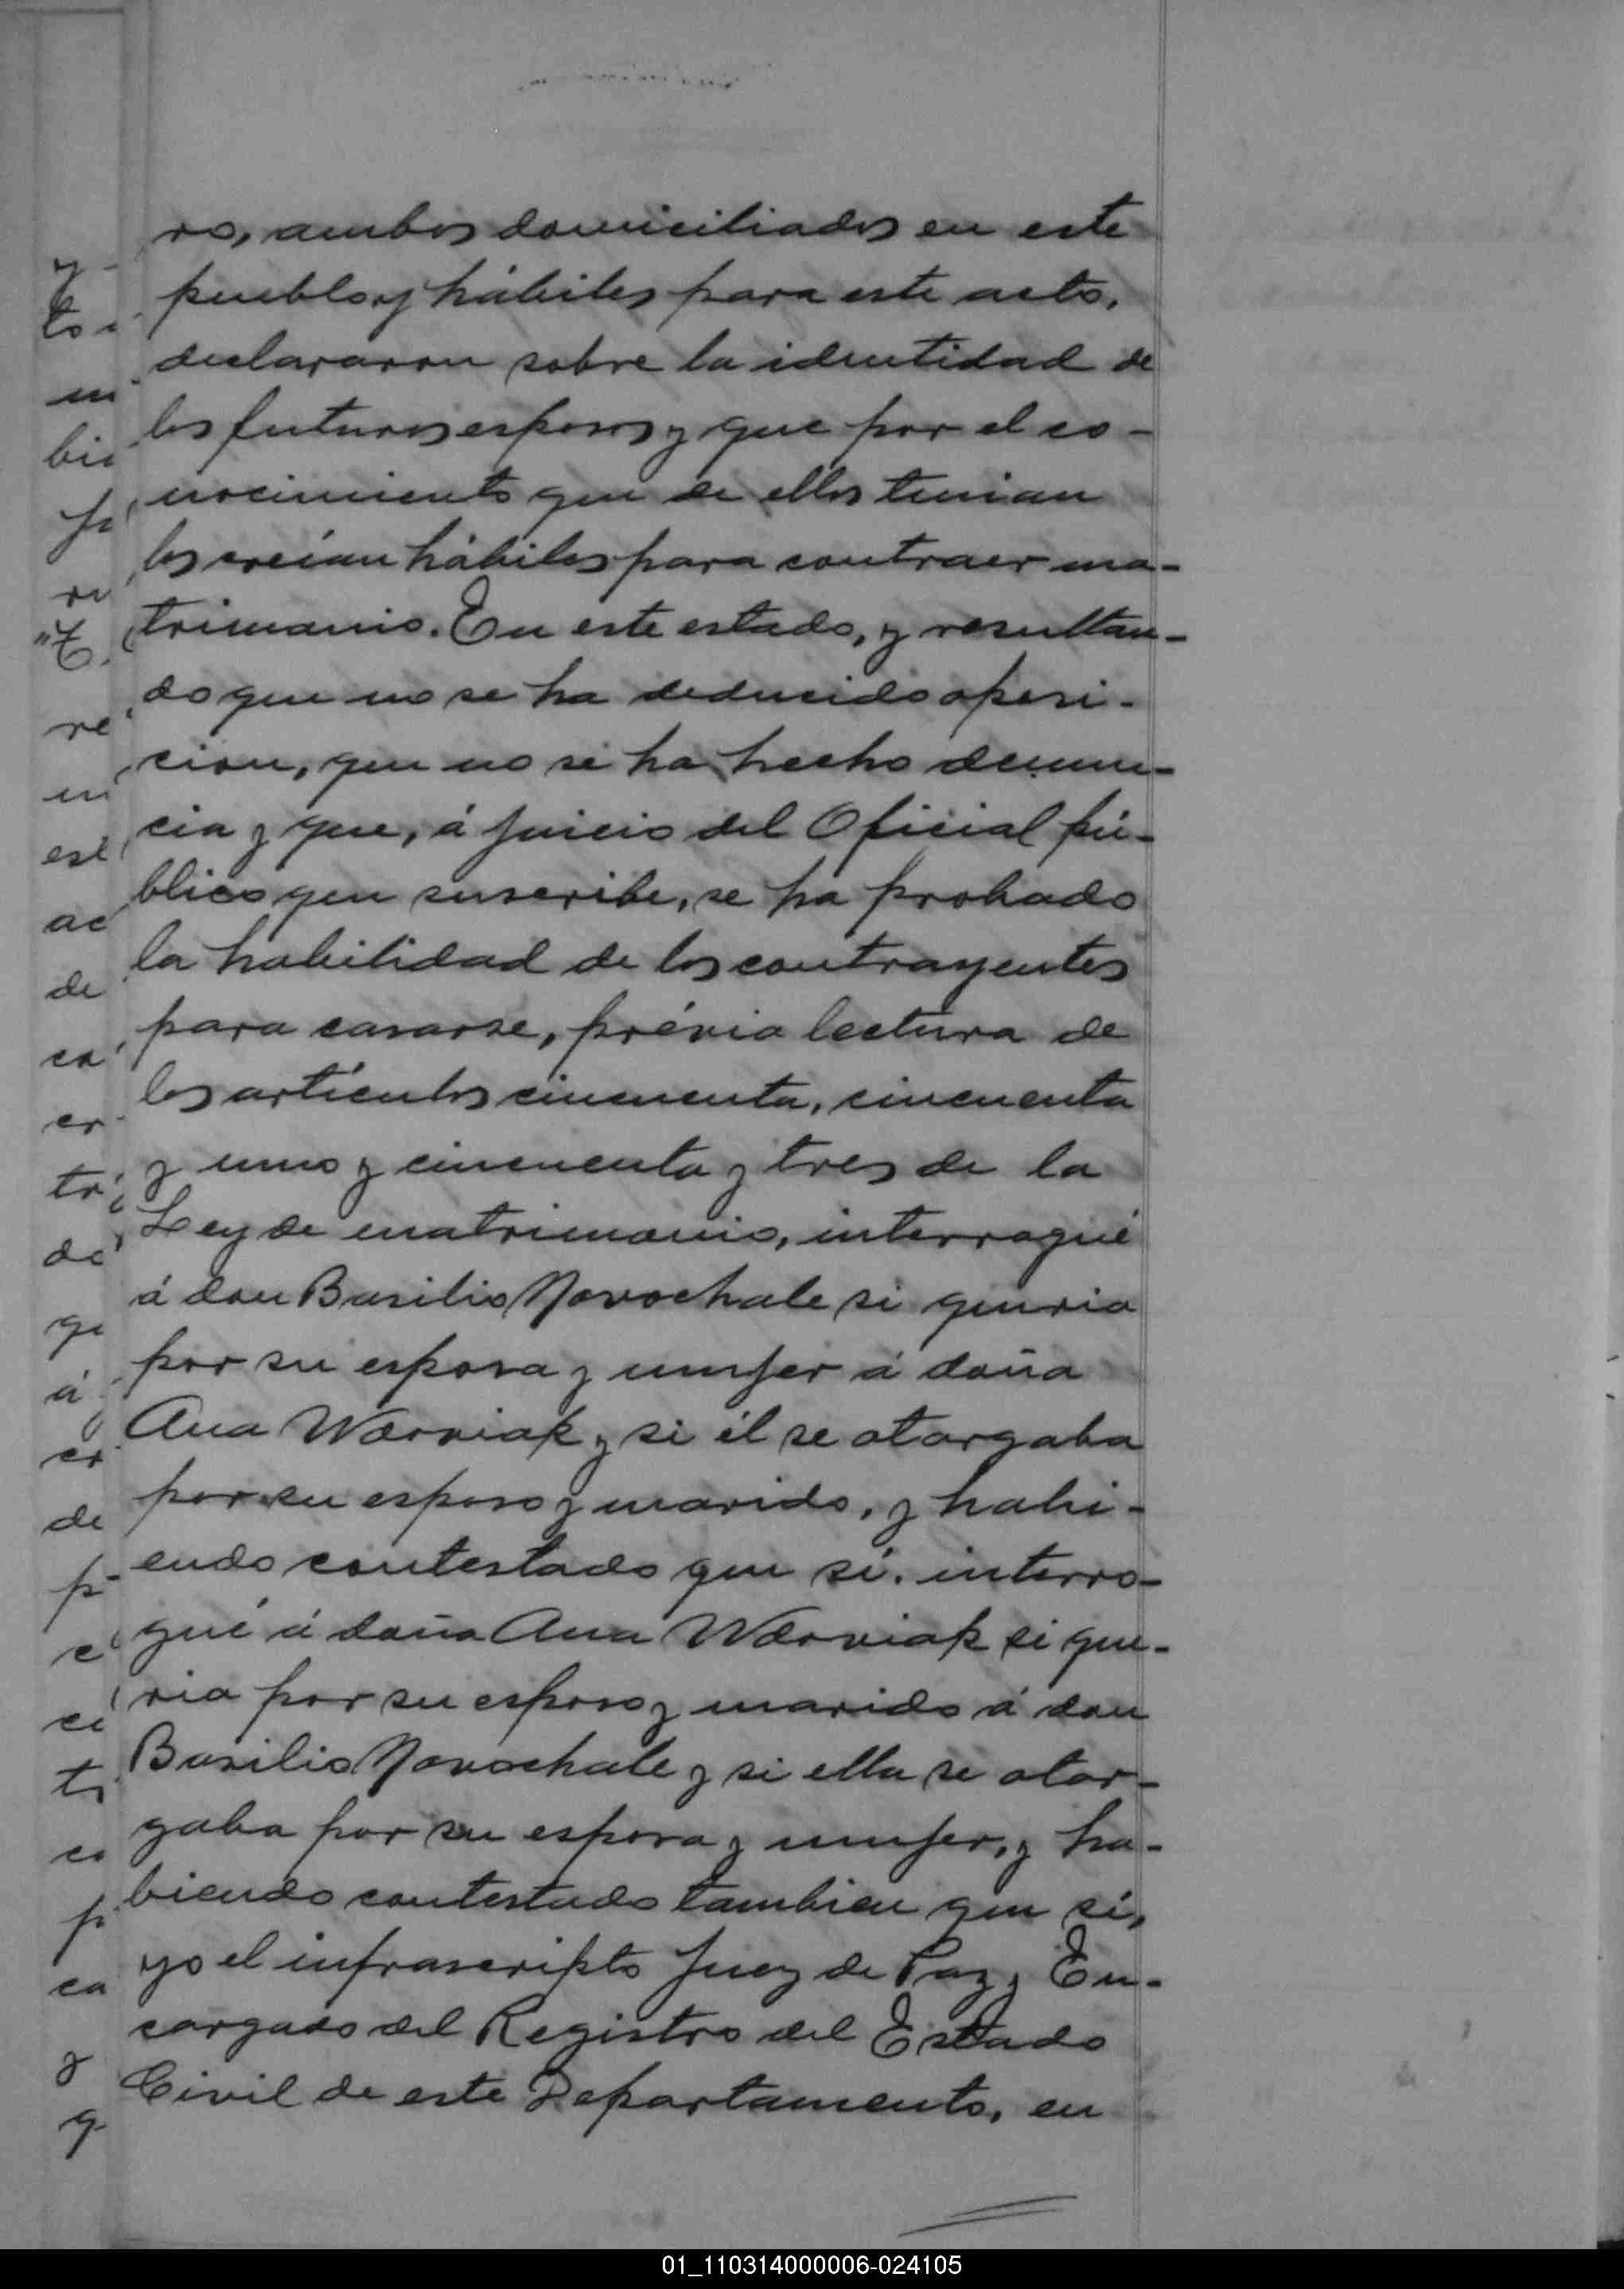 ro, ambos domiciliados en este
pueblo y hábiles para este acto,
declararon sobre la identidad de
los futuros esposos y que por el co-
nocimiento que de ellos tenian
los creían hábiles para contraer ma-
trimonio. En este estado, y resultan-
do que no se ha deducido oposi-
cion, que no se ha hecho denun-
cia y que, á juicio del Oficial pú-
blico que suscribe, se ha probado
la habilidad de los contrayentes
para casarse, prévia lectura de
los artículos cincuenta, cincuenta
y uno y cincuenta y tres de la
Ley de matrimonio, interrogué
á don Basilio Novochale si queria
por su esposa y mujer á doña
Ana Worviak y si él se otorgaba
por su esposo y marido, y habi-
endo contestado que sí. interro-
gué á doña Ana Worviak si que-
ria por su esposo y marido á don
Basilio Novochale y si ella se otor-
gaba por su esposa y mujer, y ha-
biendo contestado tambien que sí,
yo el infrascripto Juez de Paz y En-
cargado del Registro del Estado
Civil de este Departamento, en
01_110314000006-024105